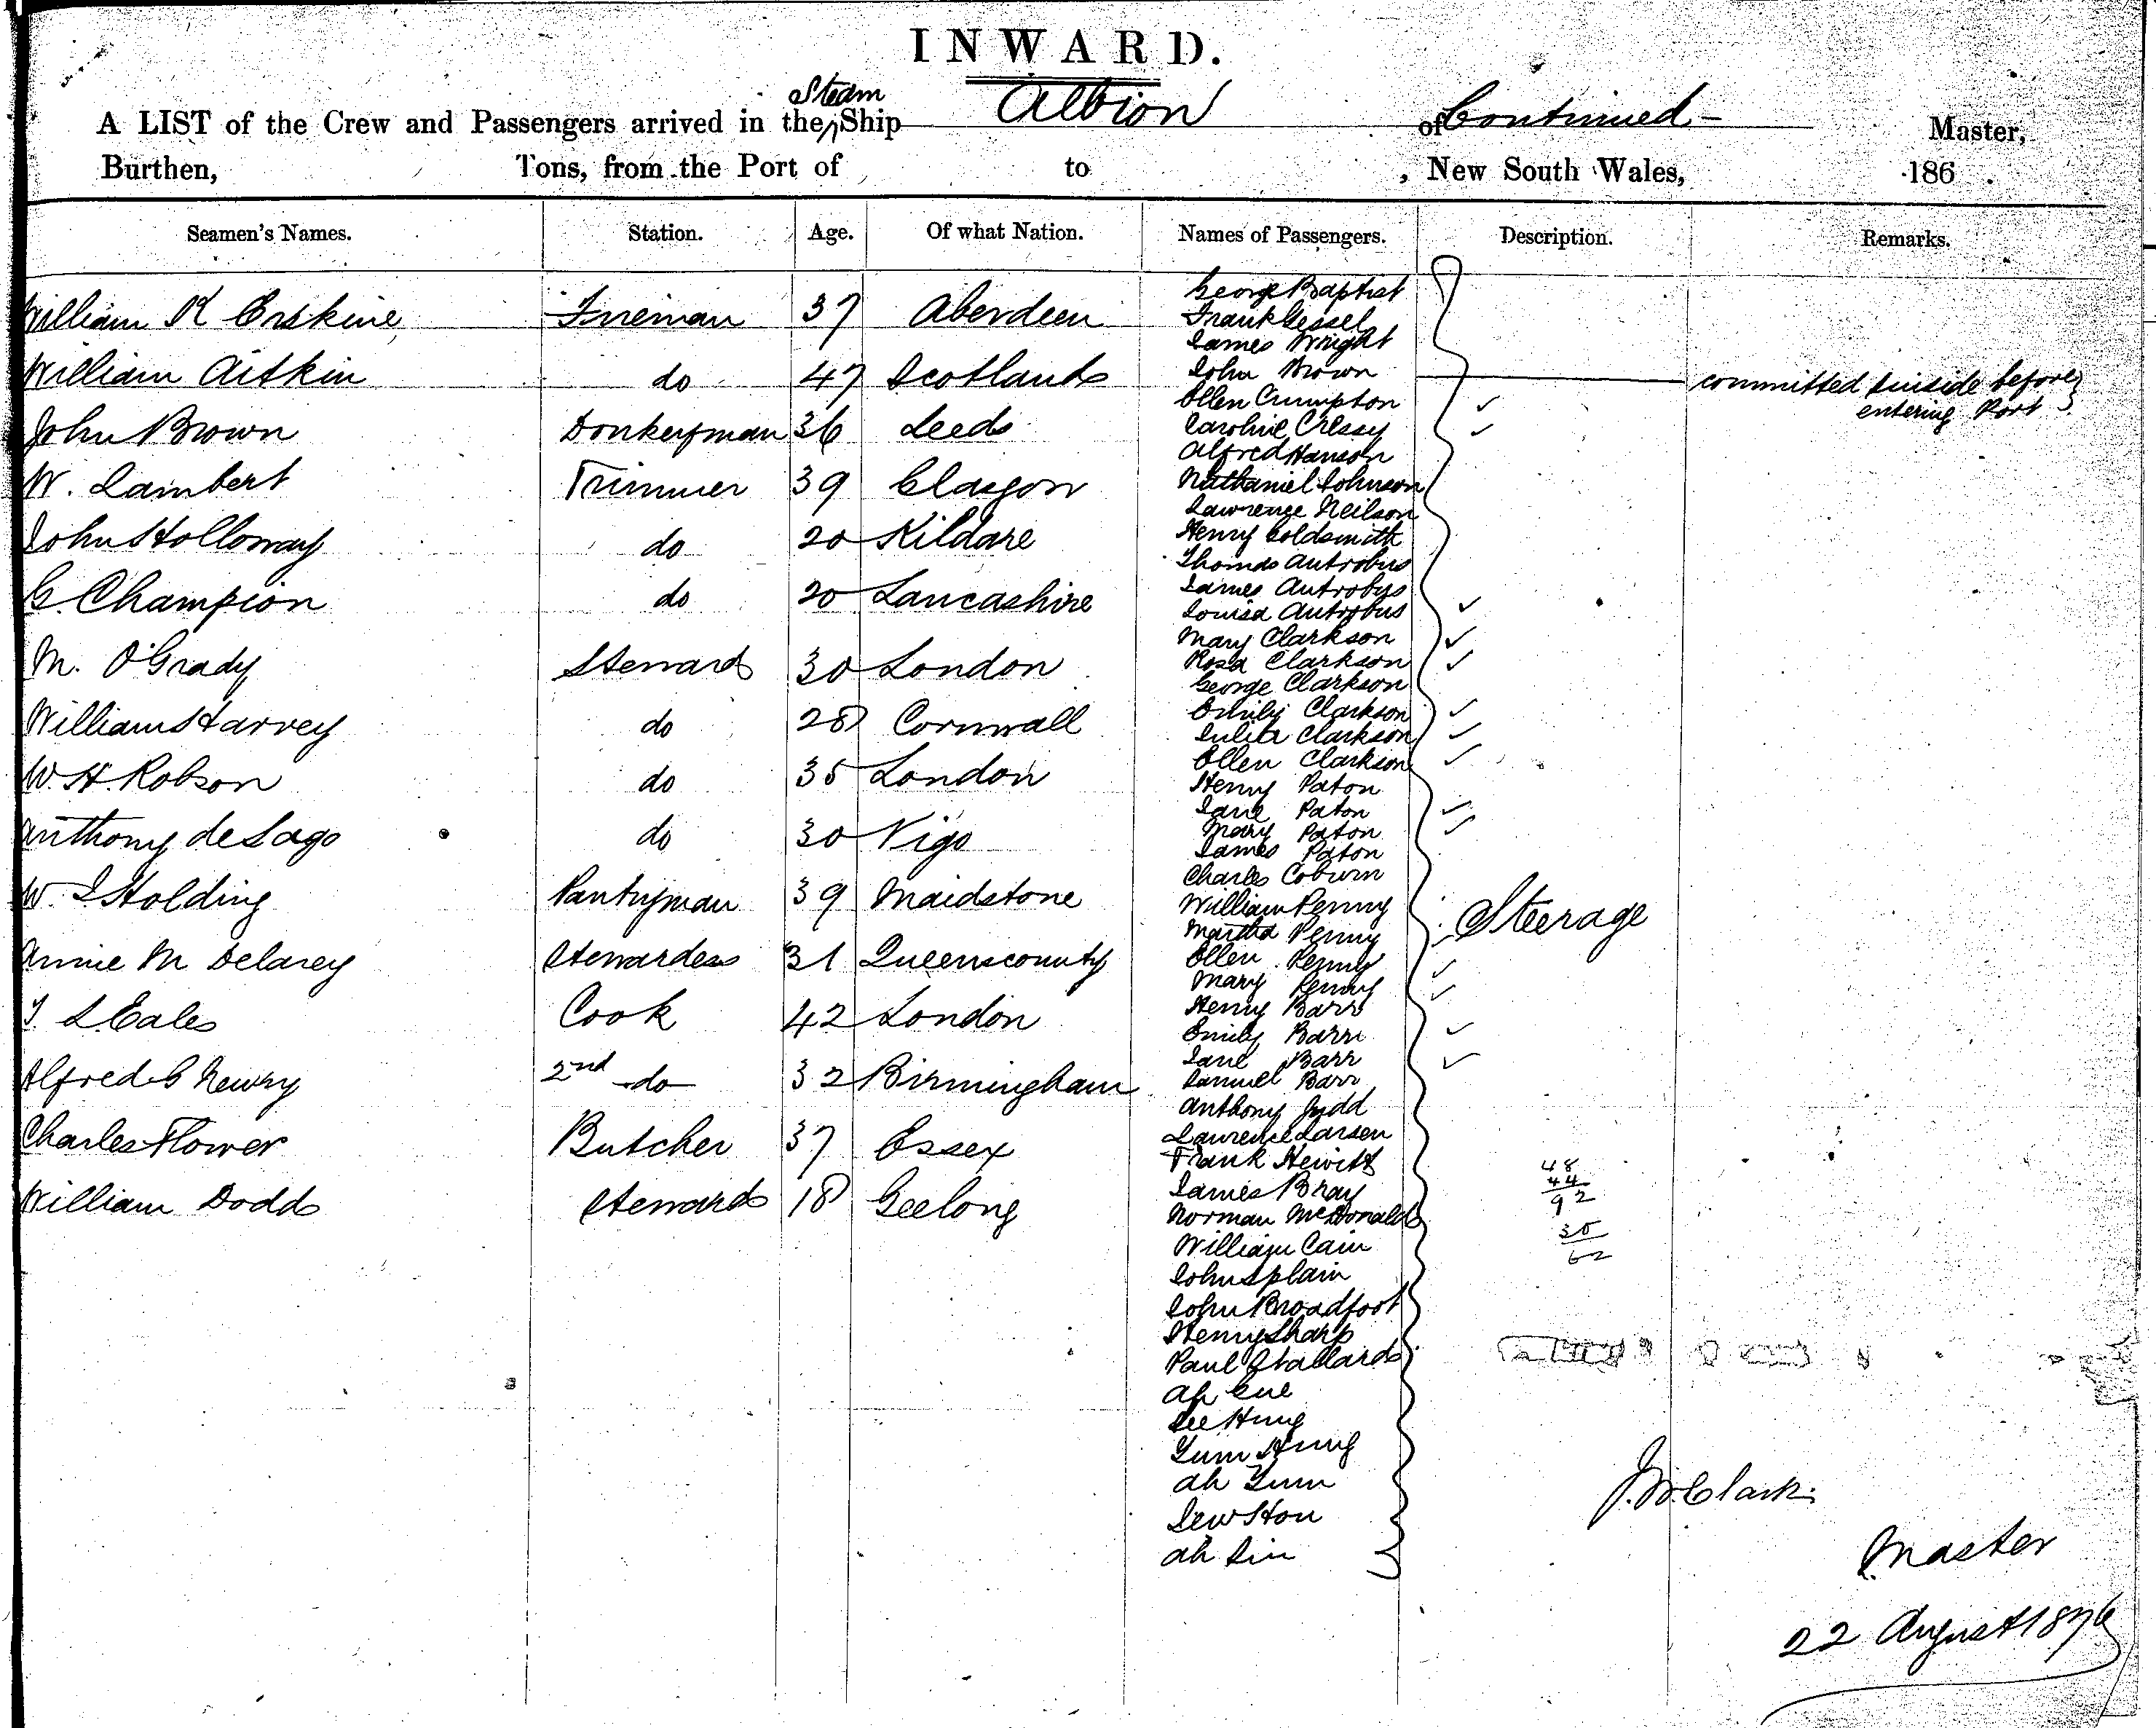 INWARD.
A LIST of the Crew and Passengers arrived in the Steam Ship Albion of Continued Master,
Burthen, Tons, from the Port of to , New South Wales, 186 .
Seamen's Names. Station. Age. Of what Nation. Names of Passengers. Description. Remarks.
William K Erskine Fireman 37 Aberdeen
William Aitkin do 47 Scotland
John Brown Donkeyman 36 Leeds
W. Lambert Trimmer 39 Glasgow
John Holloway do 20 Kildare
G. Champion do 20 Lancashire
M. O'Grady Steward 30 London
William Harvey do 28 Cornwall
W. H. Robson do 35 London
Anthony de Lago do 30 Vigo
W. J Holding Pantryman 39 Maidstone
Annie M Delarey Stewardess 31 Queenscounty
L Eales Cook 42 London
Alfred Newry 2nd do 32 Birmingham
Charles Flower Butcher 37 Essex
William Dodd Steward 18 Geelong
George Baptist
Frank Gessel
James Wright
John Brown committed suicide before
entering Port
Ellen Crumpton ✓
Caroline Cressy ✓
Alfred Hanson
Nathaniel Johnson
Lawrence Neilson
Henry Goldsmith
Thomas Autrobus
James Autrobus
Louisa Autrobus ✓
Mary Clarkson ✓
Rosa Clarkson ✓
George Clarkson
Emily Clarkson ✓
Julia Clarkson ✓
Ellen Clarkson ✓
Henry Paton
Jane Paton ✓
Mary Paton ✓
James Paton
Charles Coburn
William Penny Steerage
Martha Penny ✓
Ellen Penny ✓
Mary Penny ✓
Henry Barr
Emily Barr ✓
Jane Barr ✓
Samuel Barr
Anthony Judd
Laurence Larsen
Frank Hewitt
James Bray
Norman McDonald
William Cain
John Splain
John Broadfoot
Henry Sharp
Paul Stallard
Ah Gue
See Hung
Yum Hung
Ah Yum
Lew Hon
Ah Sin
48
44
92
30
62
J. W. Clark
Master
22 August 1876